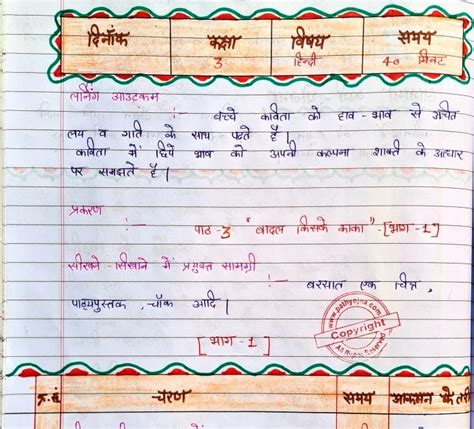 दिनाँक कक्षा विषय समय
3 हिन्दी 40 मिनट
लर्निंग आउटकम
:- बच्चे कविता को हाव-भाव से उचित
लय व गति के साथ पढ़ते हैं |
कविता में छिपे भाव को अपनी कल्पना शक्ति के आधार
पर समझते हैं |
प्रकरण
:- पाठ-3 "बादल किसके काका"-[भाग-1]
सीखने-सिखाने में प्रयुक्त सामग्री
:- बरसात एक चित्र,
पाठ्यपुस्तक, चॉक आदि |
www.pathyojna.com
Copyright
All Rights Reserved
[भाग-1]
क्र.सं. चरण समय आकलन के तरी